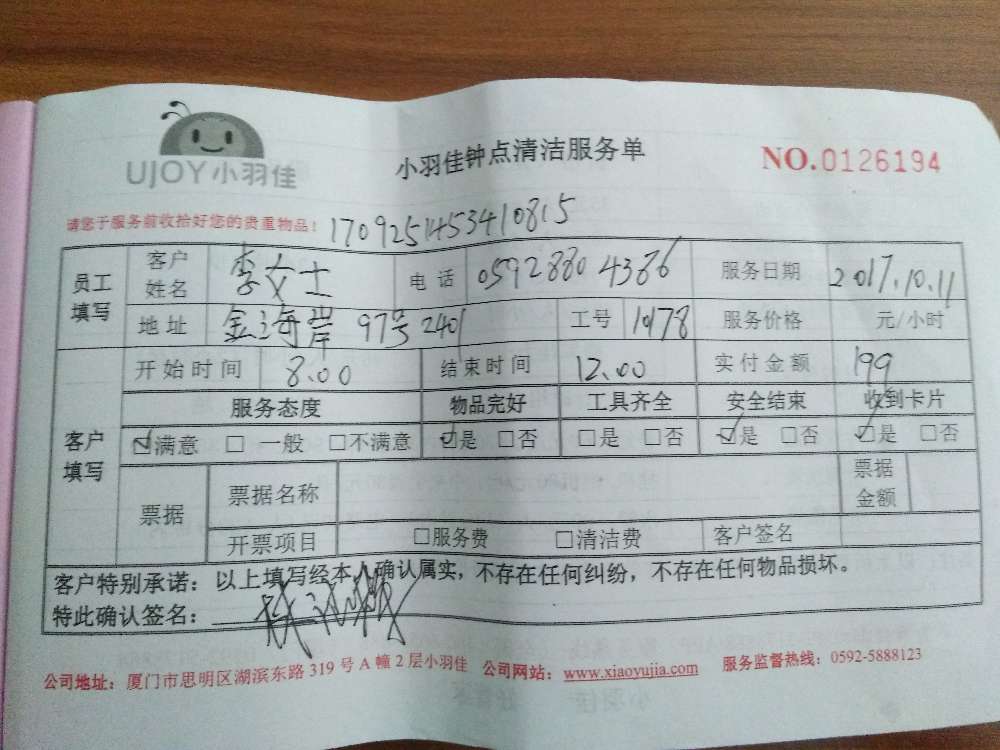 UJOY小羽佳
小羽佳钟点清洁服务单
NO.0126194
请您于服务前收拾好您的贵重物品！
1709251453410815
员工填写 客户姓名 李女士 电话 05928804386 服务日期 2017.10.11
地址 金海岸 97号2401 工号 1078 服务价格 元/小时
客户填写 开始时间 8.00 结束时间 12.00 实付金额 199
服务态度 物品完好 工具齐全 安全结束 收到卡片
☑满意 □一般 □不满意 ☑是 □否 □是 □否 ☑是 □否 ☑是 □否
票据 票据名称 票据金额
开票项目 □服务费 □清洁费 客户签名
客户特别承诺：以上填写经本人确认属实，不存在任何纠纷，不存在任何物品损坏。
特此确认签名：
公司地址：厦门市思明区湖滨东路319号A幢2层小羽佳 公司网站：www.xiaoyujia.com 服务监督热线：0592-5888123